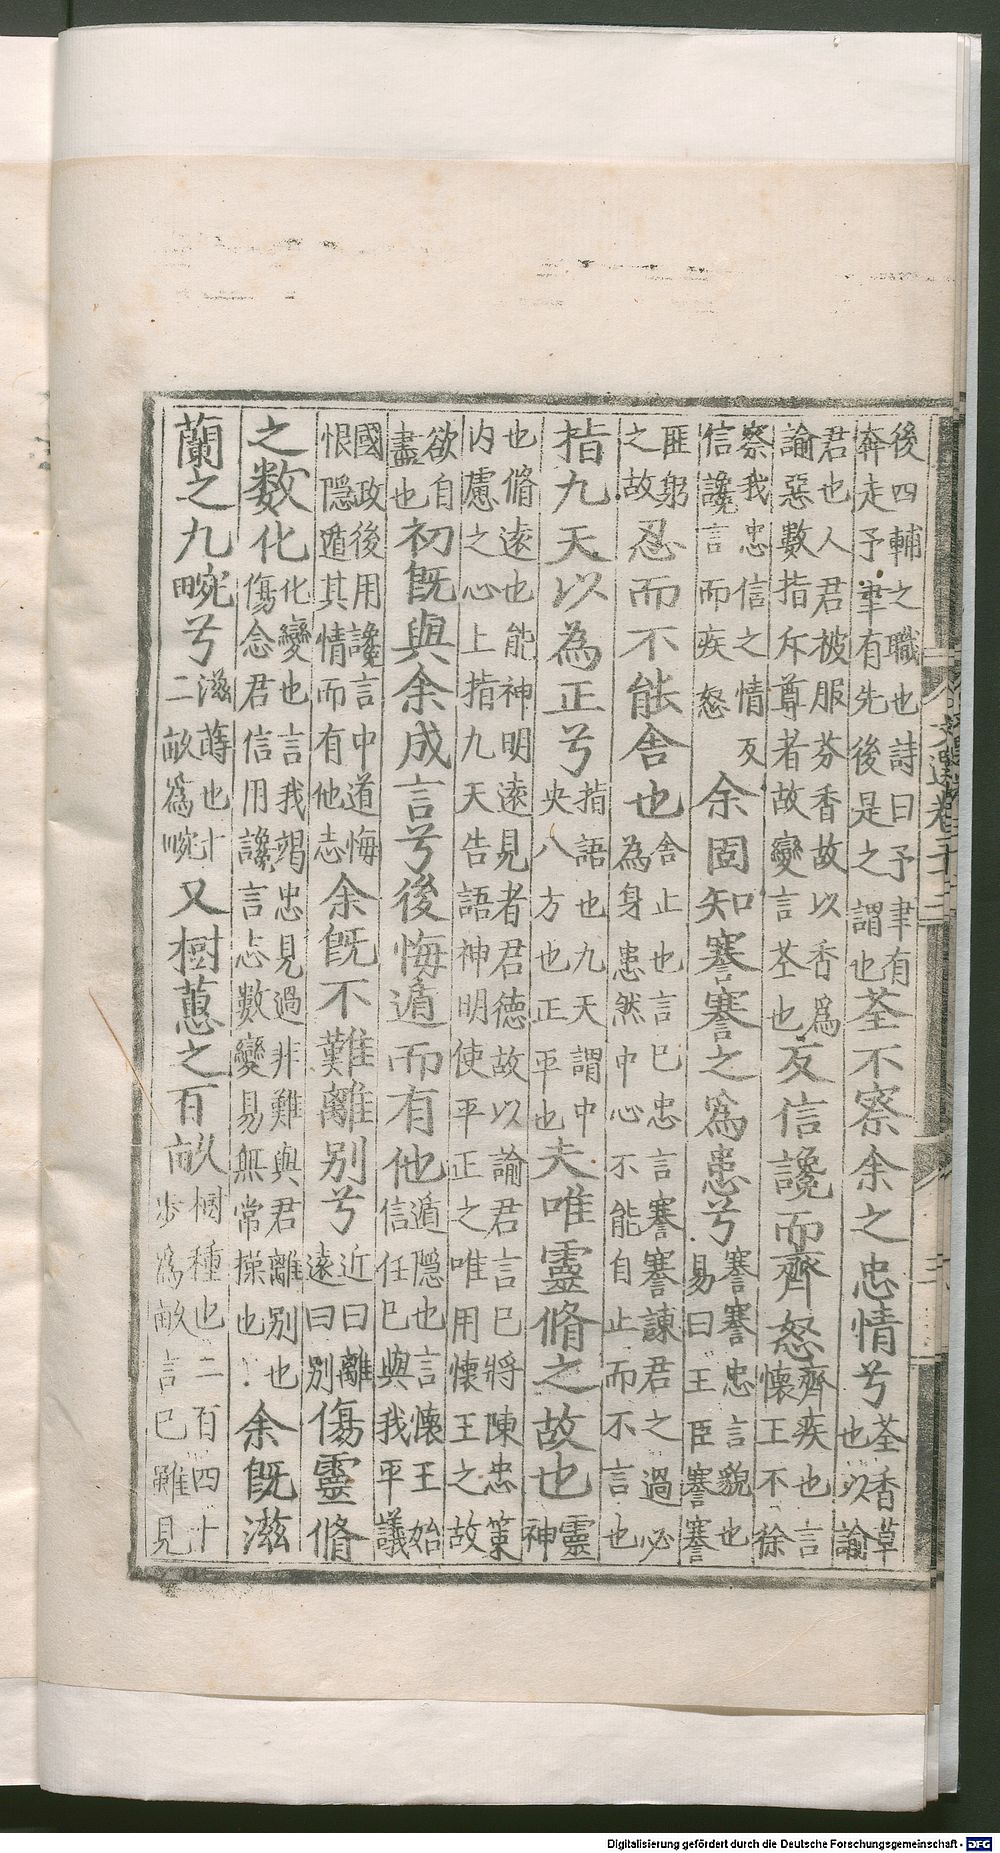 後四輔之職也詩曰予聿有奔走予聿有先後是之謂也荃不察余之忠情兮荃香草也以諭
君也人君被服芬香故以香爲諭惡數指斥尊者故變言荃也反信讒而齊怒齊疾也言懷王不徐
察我忠信之情反信讒言而疾怒余固知謇謇之為患兮謇謇忠言貌也易曰王臣謇謇
匪躬之故忍而不能舍也舍止也言已忠言謇謇諫君之過必為身患然中心不能自止而不言也
指九天以為正兮指語也九天謂中央八方也正平也夫唯靈脩之故也靈神
也脩遠也能神明遠見者君德故以諭君言已將陳忠策内慮之心上指九天告語神明使平正之唯用懷王之故
欲自盡也初旣與余成言兮後悔遁而有他遁隱也言懷王始信任已與我平議
國政後用讒言中道悔恨隱遁其情而有他志余旣不難離別兮近曰離遠曰別傷靈脩
之数化化變也言我竭忠見過非難與君離別也傷念君信用讒言志數變易無常操也余旣滋
蘭之九畹兮滋蒔也十二畝爲畹又樹蕙之百畝樹種也二百四十步爲畝言已雖見
Digitalisierung gefördert durch die Deutsche Forschungsgemeinschaft - DFG